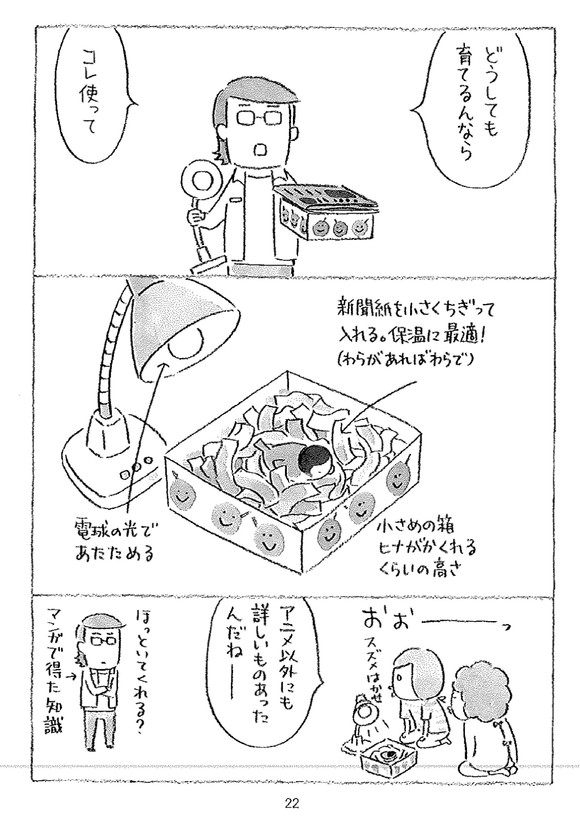 どうしても
育てるんなら
コレ使って
新聞紙を小さくちぎって
入れる。保温に最適!
(わらがあればわらで)
電球の光で
あたためる
小さめの箱
ヒナがかくれる
くらいの高さ
おぉーーっ
スズメはかせ
アニメ以外にも
詳しいものあった
んだねーー
ほっといてくれる?
マンガで得た知識
22